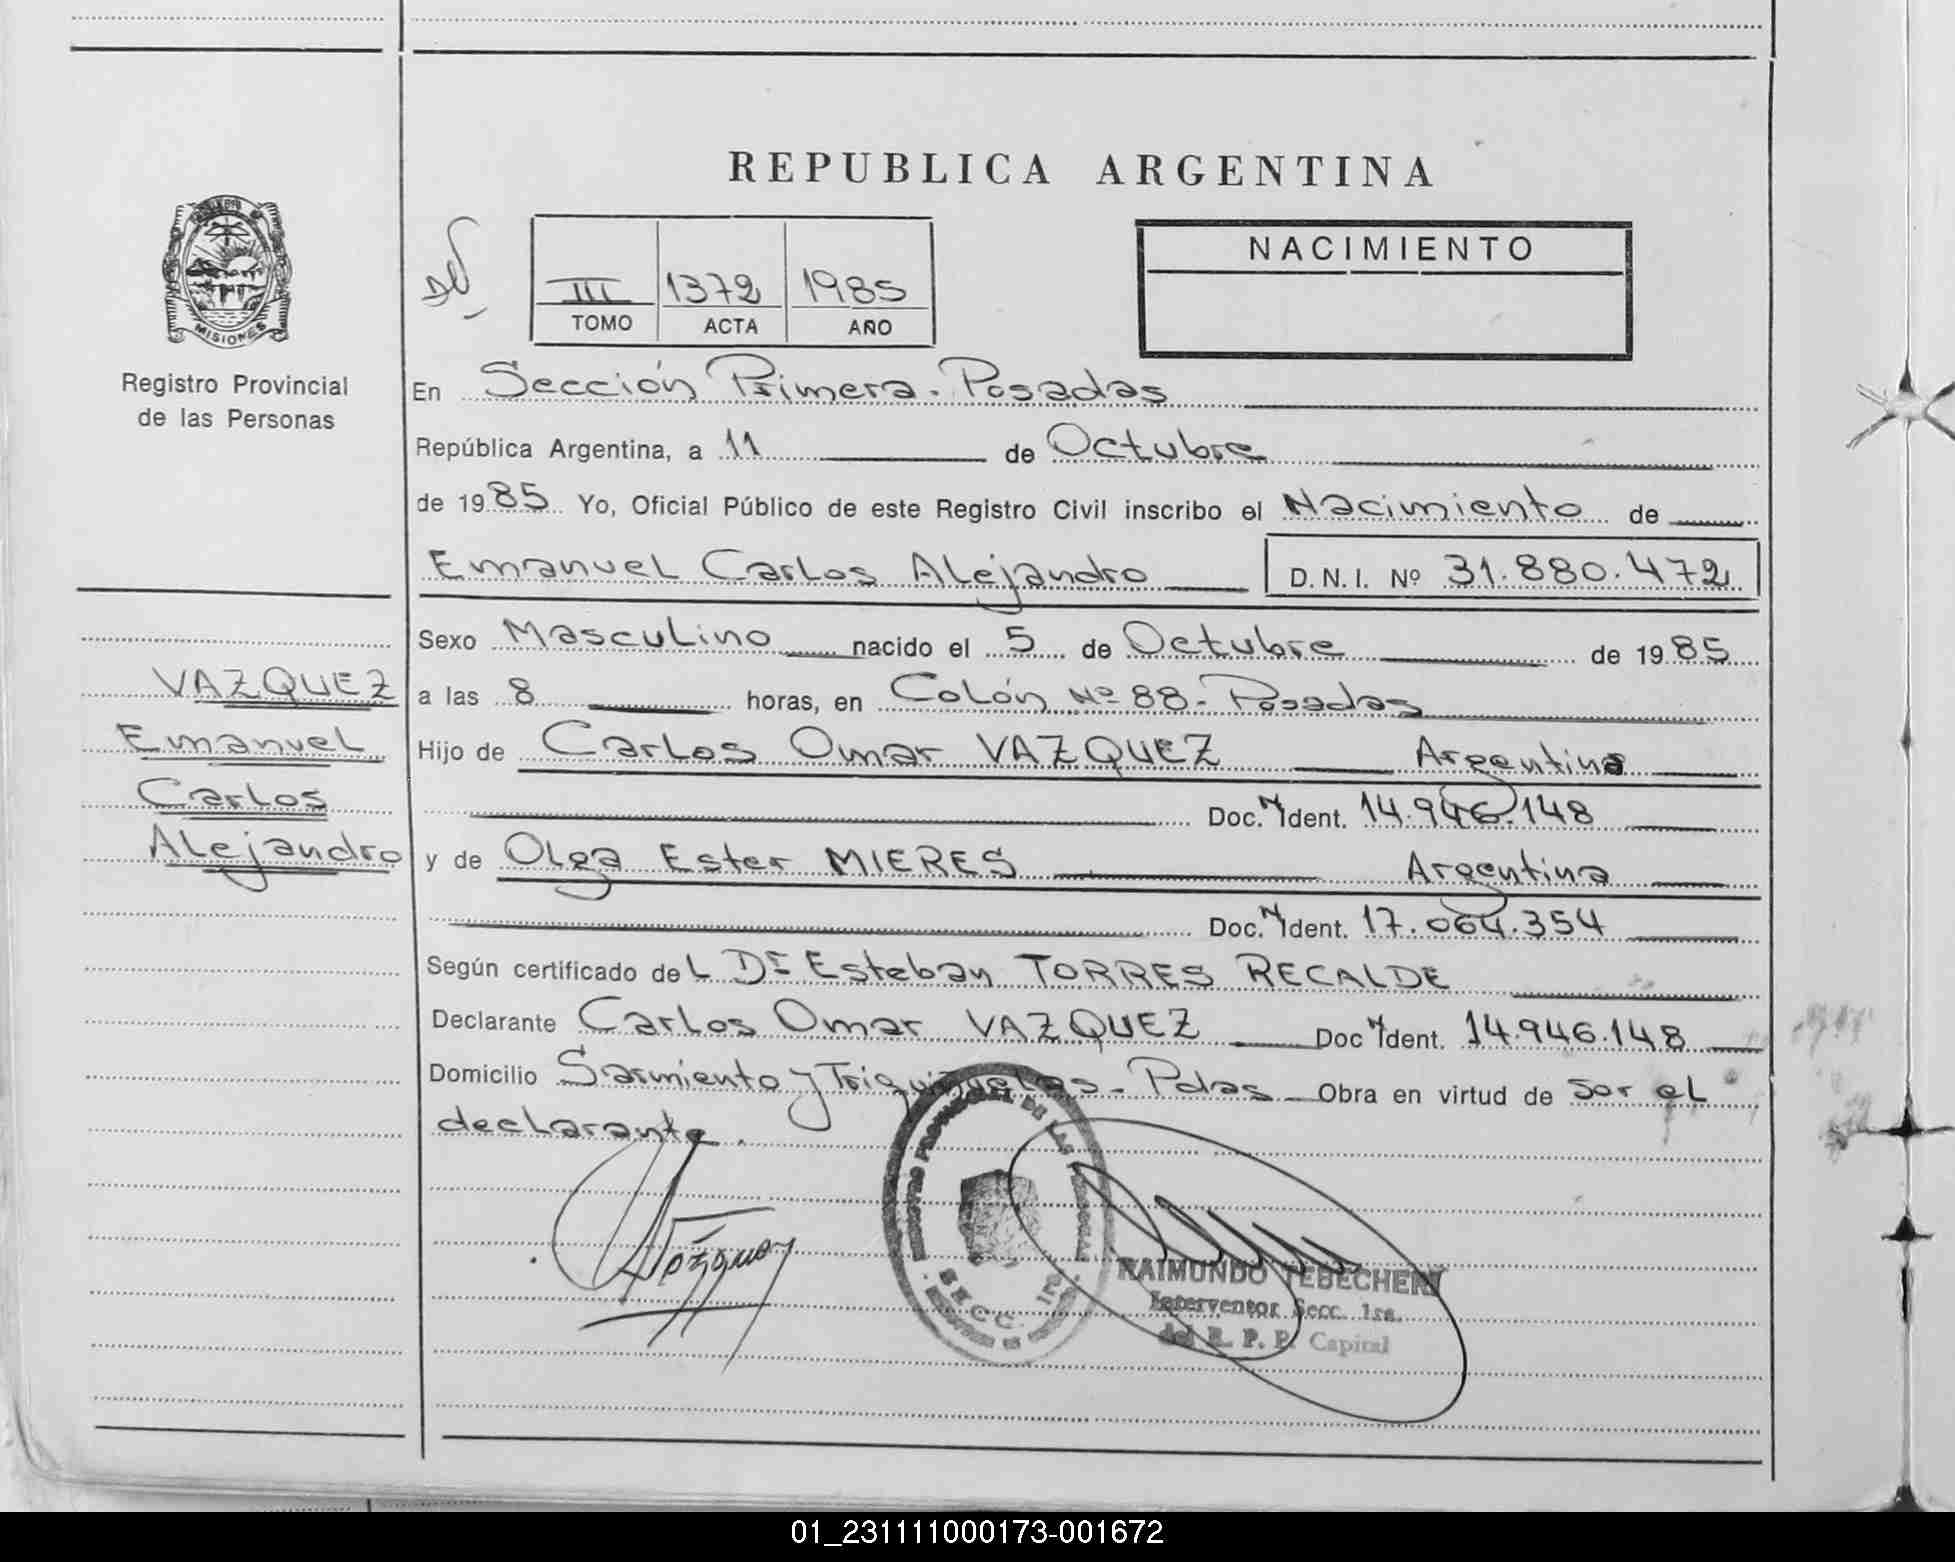 REPUBLICA ARGENTINA
MISIONES
Registro Provincial
de las Personas
III 1372 1985
TOMO ACTA AÑO
NACIMIENTO
En Sección Primera - Posadas
República Argentina, a 11 de Octubre
de 1985 Yo, Oficial Público de este Registro Civil inscribo el Nacimiento de
Emanuel Carlos Alejandro D.N.I. Nº 31.880.472
Sexo Masculino nacido el 5 de Octubre de 1985
VAZQUEZ
Emanuel
Carlos
Alejandro
a las 8 horas, en Colón Nº 88 - Posadas
Hijo de Carlos Omar VAZQUEZ Argentina
Doc. Ident. 14.946.148
y de Olga Ester MIERES Argentina
Doc. Ident. 17.064.354
Según certificado del Dr Esteban TORRES RECALDE
Declarante Carlos Omar VAZQUEZ Doc Ident. 14.946.148
Domicilio Sarmiento y Triquiñuelas - Pdas Obra en virtud de ser el
declarante.
RAIMUNDO TEBECHERI
Interventor Secc. 1ra.
del R. P. P. Capital
01_231111000173-001672